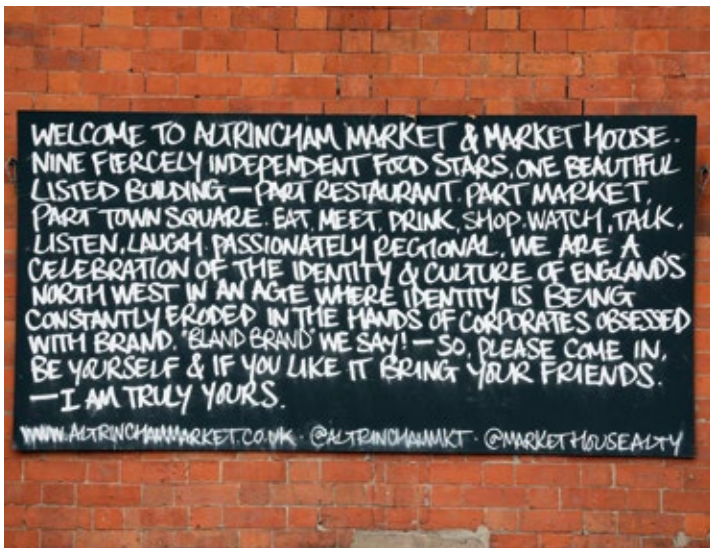 WELCOME TO ALTRINCHAM MARKET & MARKET HOUSE.
NINE FIERCELY INDEPENDENT FOOD STARS, ONE BEAUTIFUL
LISTED BUILDING — PART RESTAURANT, PART MARKET,
PART TOWN SQUARE. EAT, MEET, DRINK, SHOP, WATCH, TALK,
LISTEN, LAUGH. PASSIONATELY REGIONAL, WE ARE A
CELEBRATION OF THE IDENTITY & CULTURE OF ENGLAND'S
NORTH WEST IN AN AGE WHERE IDENTITY IS BEING
CONSTANTLY ERODED IN THE HANDS OF CORPORATES OBSESSED
WITH BRAND. "BLAND BRAND" WE SAY! — SO, PLEASE COME IN,
BE YOURSELF & IF YOU LIKE IT BRING YOUR FRIENDS.
— I AM TRULY YOURS.
WWW.ALTRINCHAMMARKET.CO.UK · @ALTRINCHAMMKT · @MARKETHOUSEALTY